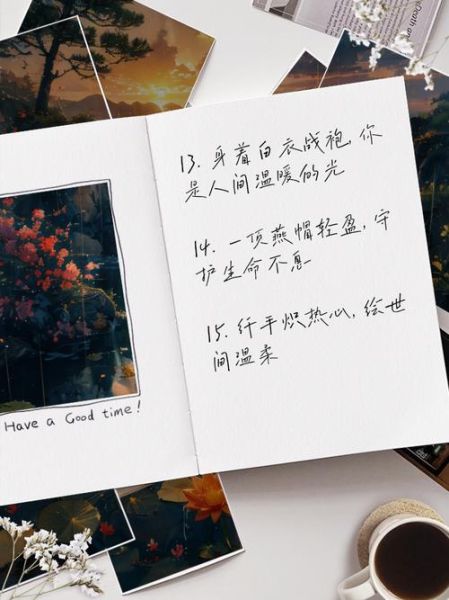 Death on
13. 身着白衣战袍, 你
是人间温暖的光
14. 一顶燕帽轻盈, 守
护生命不息
15. 纤手炽热心, 绘世
间温柔
Have a Good time!